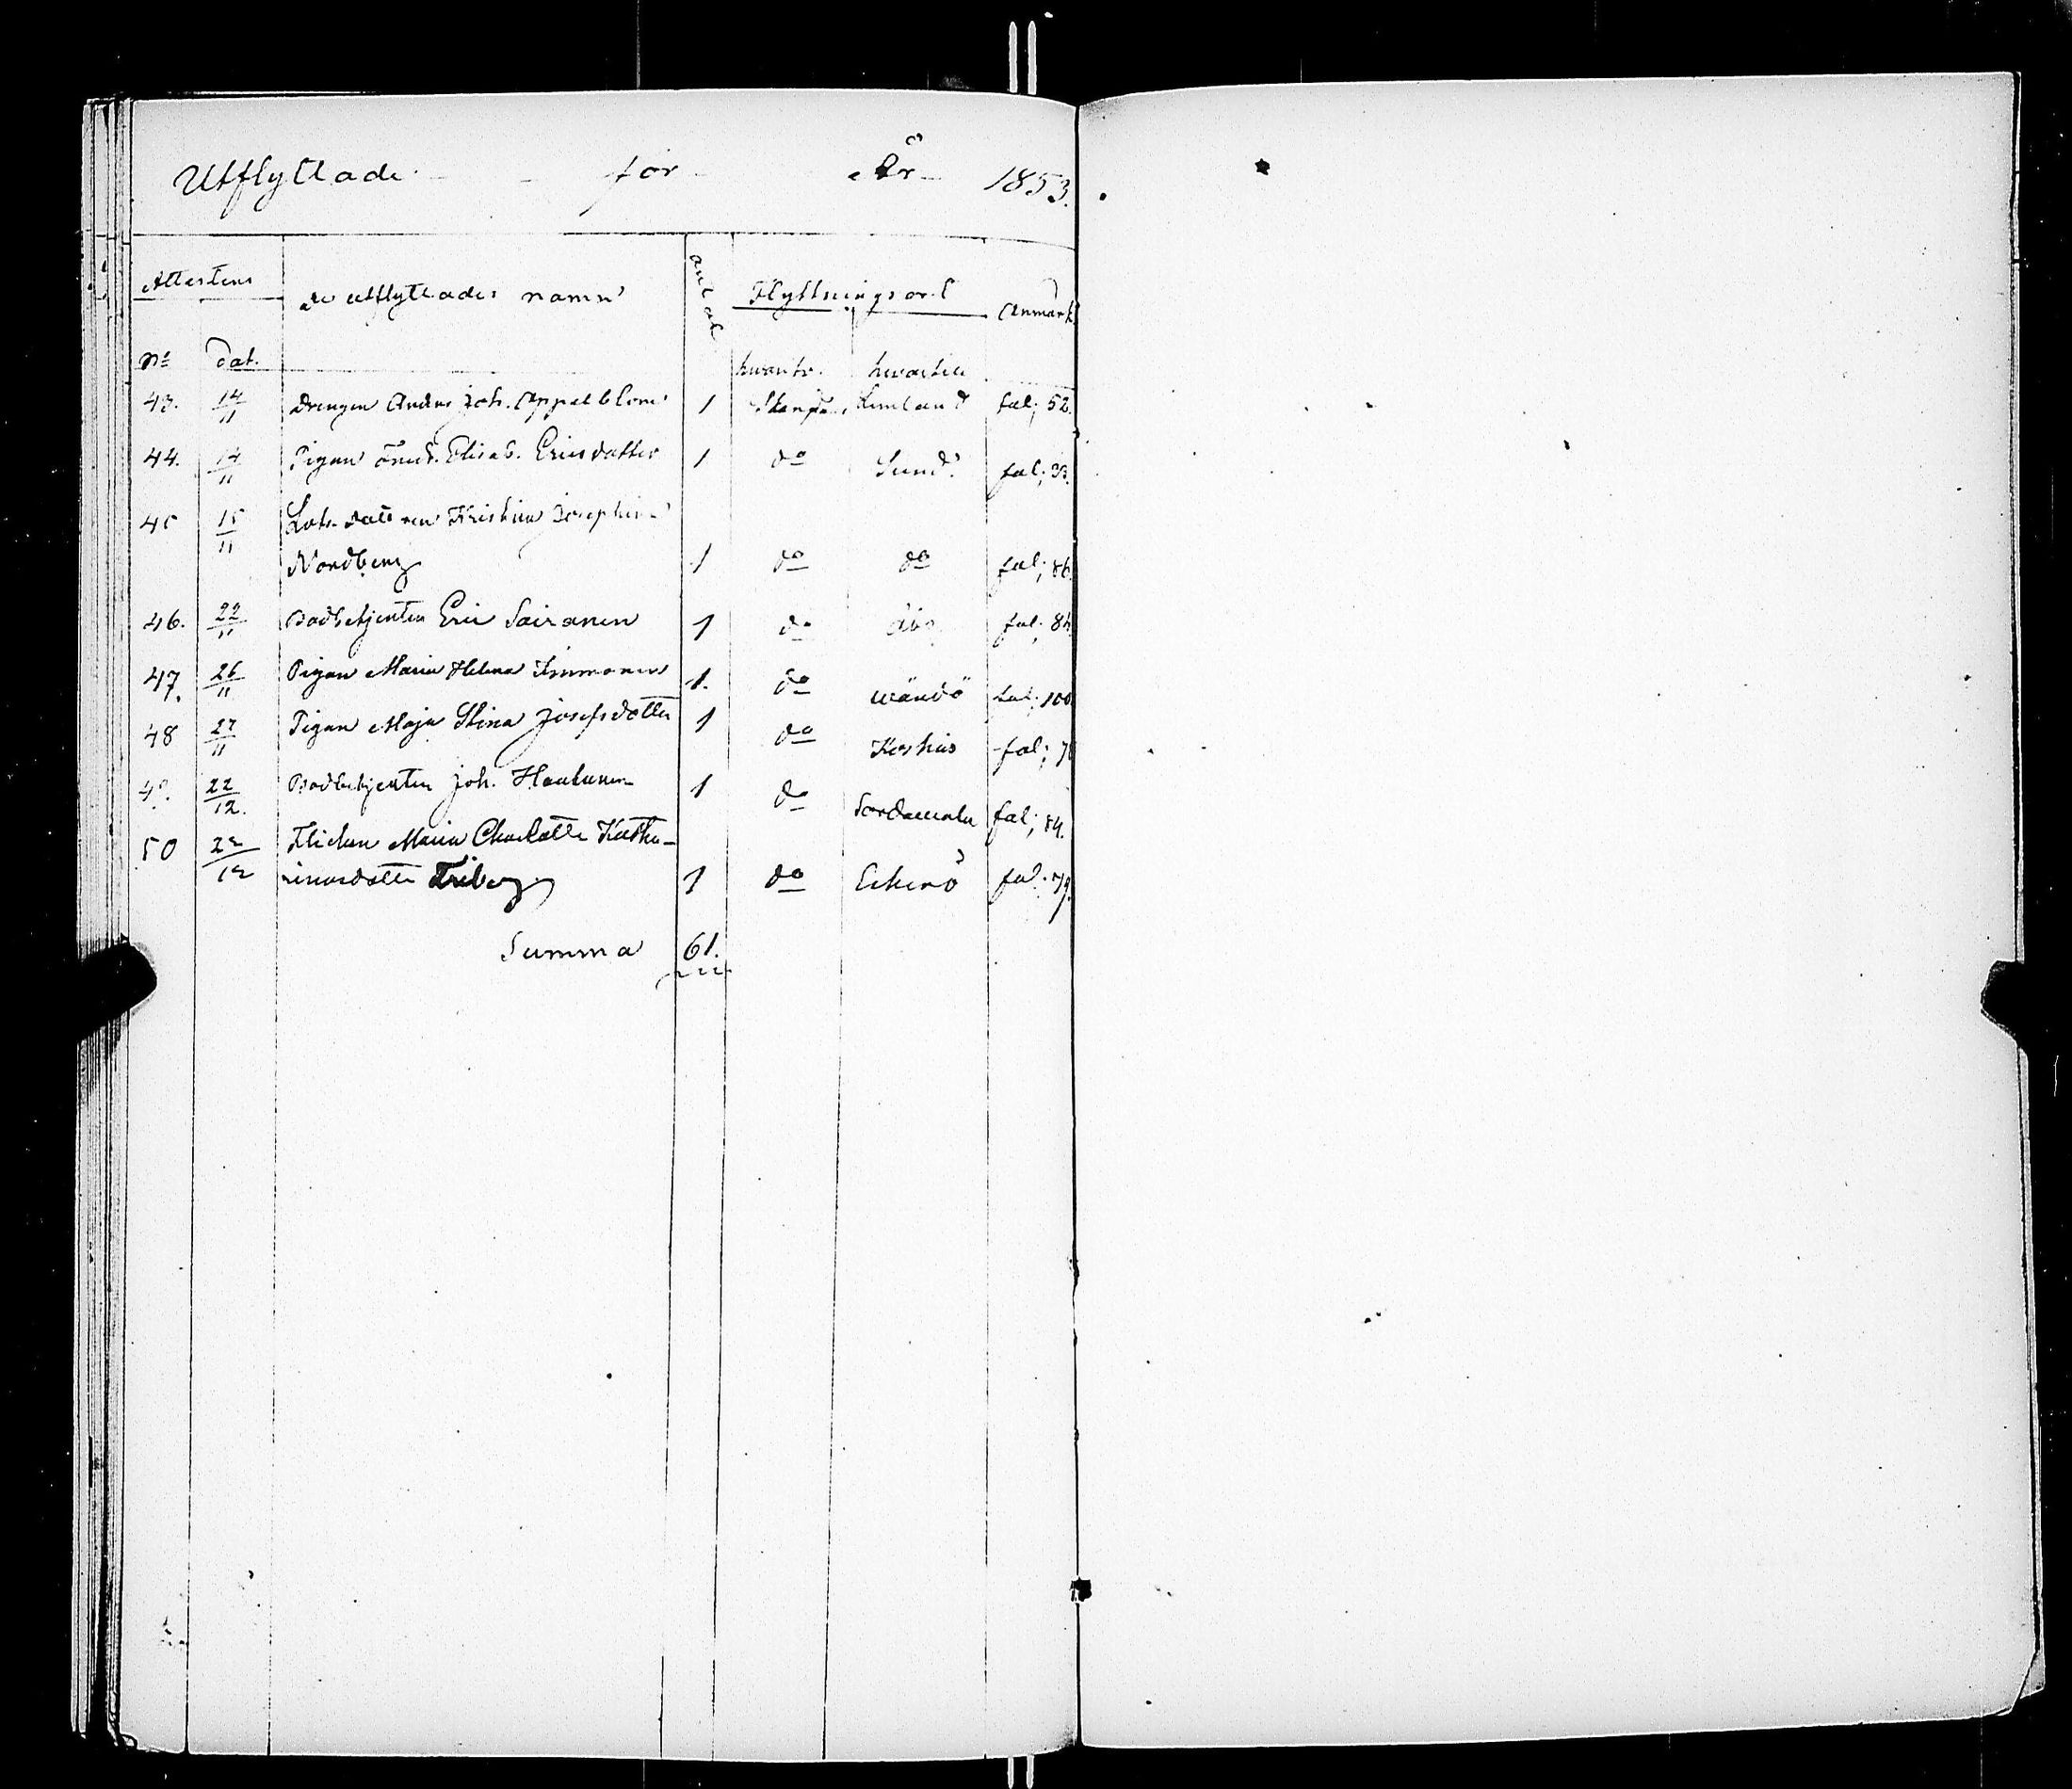 Utflyttade för År 1853.
Attestens de utflyttades namn antal Flyttningsort Anmärk.
No dat. hvarifr. hvarthen
43. 14/11 Drengen Anders Joh. Appelblom 1 Skarpans Lemland fol; 52.
44. 14/11 Pigan Elisab. Ericsdotter 1 do Sund fol; 33.
45 15/11 Lots dottren Kristina Josephina
Nordberg 1 do do fol; 86.
46. 22/11 Bodbetjenten Eric Sairanen 1 do Åbo fol; 84
47. 26/11 Pigan Maria Helena Immonen 1. do Wårdö fol; 100
48 27/11 Pigan Maja Stina Josefsdotter 1 do Korshäs fol; 78
49. 22/12. Bodbetjenten Joh. Haukanen 1 do Sordawala fol; 84.
50 22/12 Flickan Maria Charlotta Katha-
rinasdotter Friberg 1 do Eckerö fol. 79.
Summa 61.